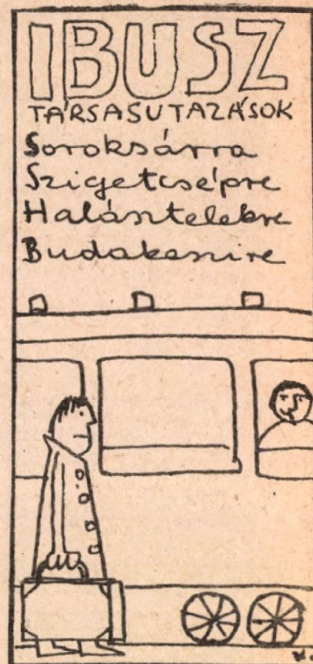 IBUSZ
TÁRSASUTAZÁSOK
Soroksárra
Szigetcsépre
Halásztelekre
Budakeszire